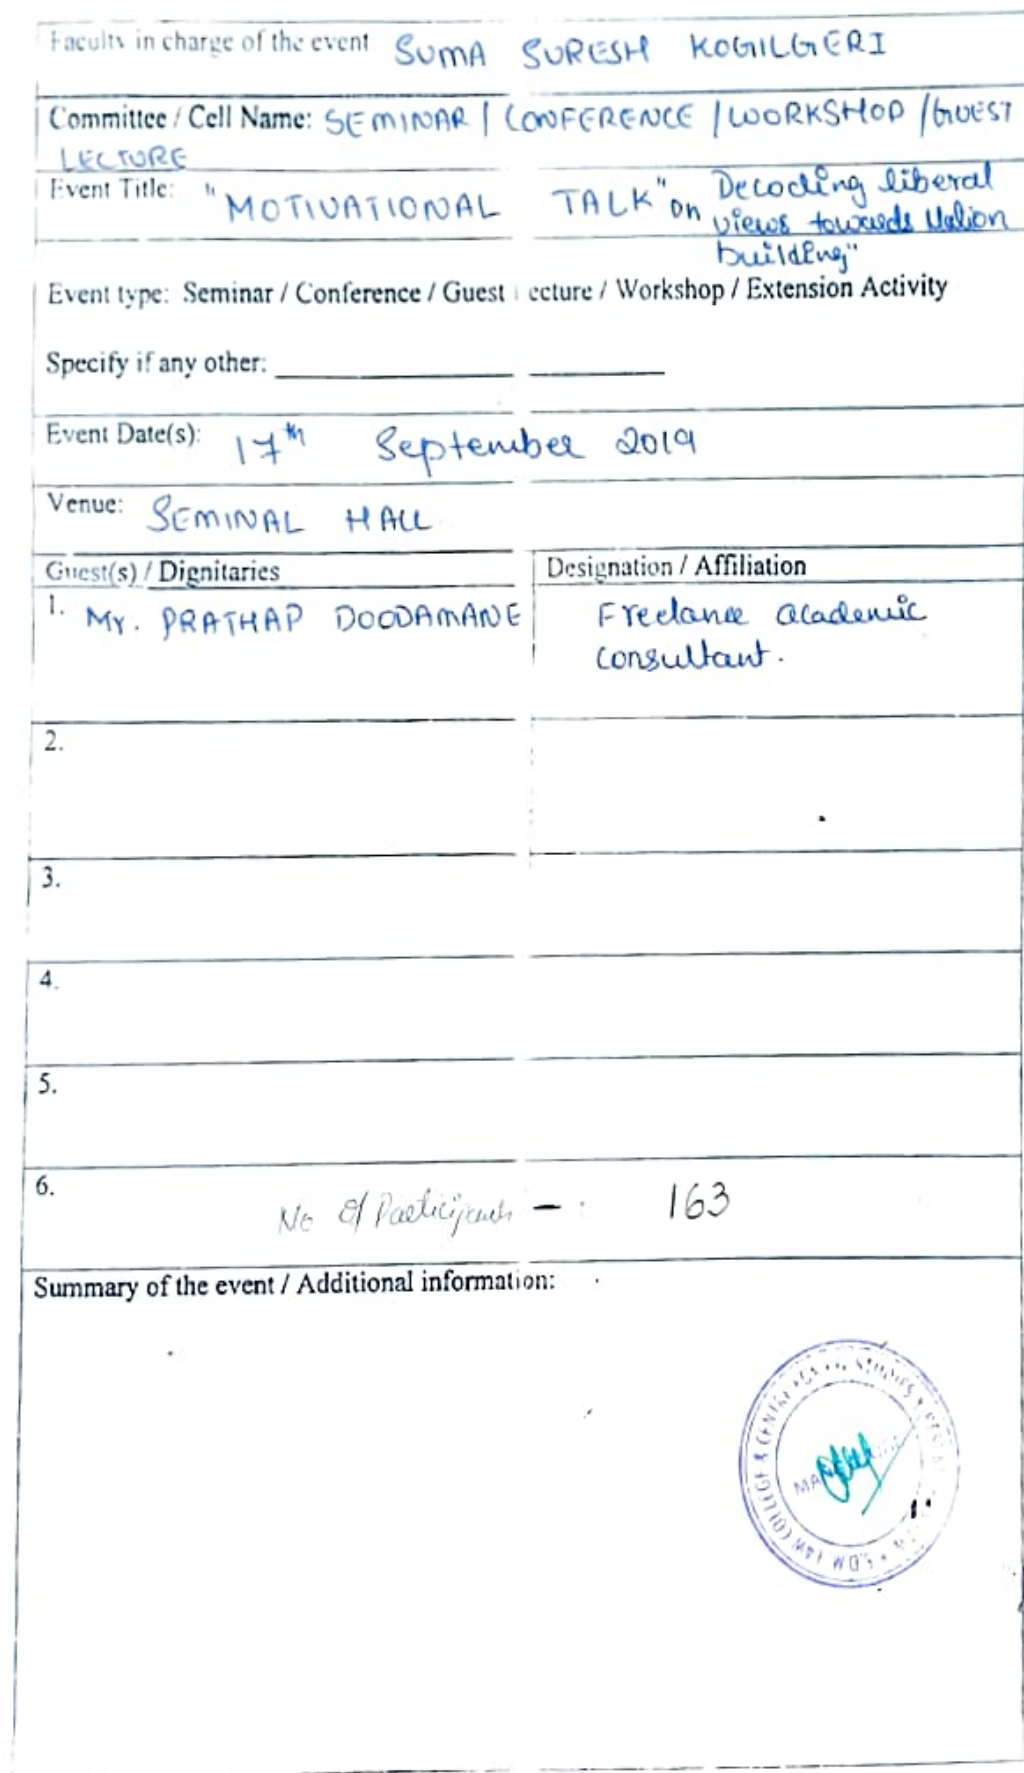 Faculty in charge of the event SUMA SURESH KOGILGERI
Committee / Cell Name: SEMINAR / CONFERENCE / WORKSHOP / GUEST
LECTURE
Event Title: "MOTIVATIONAL TALK" on Decoding liberal
views towards Nation
building"
Event type: Seminar / Conference / Guest ecture / Workshop / Extension Activity
Specify if any other:
Event Date(s): 17th September 2019
Venue: SEMINAL HALL
Guest(s) / Dignitaries Designation / Affiliation
1. Mr. PRATHAP DOODAMANE Freelance academic
consultant.
2.
3.
4.
5.
6.
No of Participants - : 163
Summary of the event / Additional information:
S.D.M. LAW COLLEGE & CENTRE STUDIES